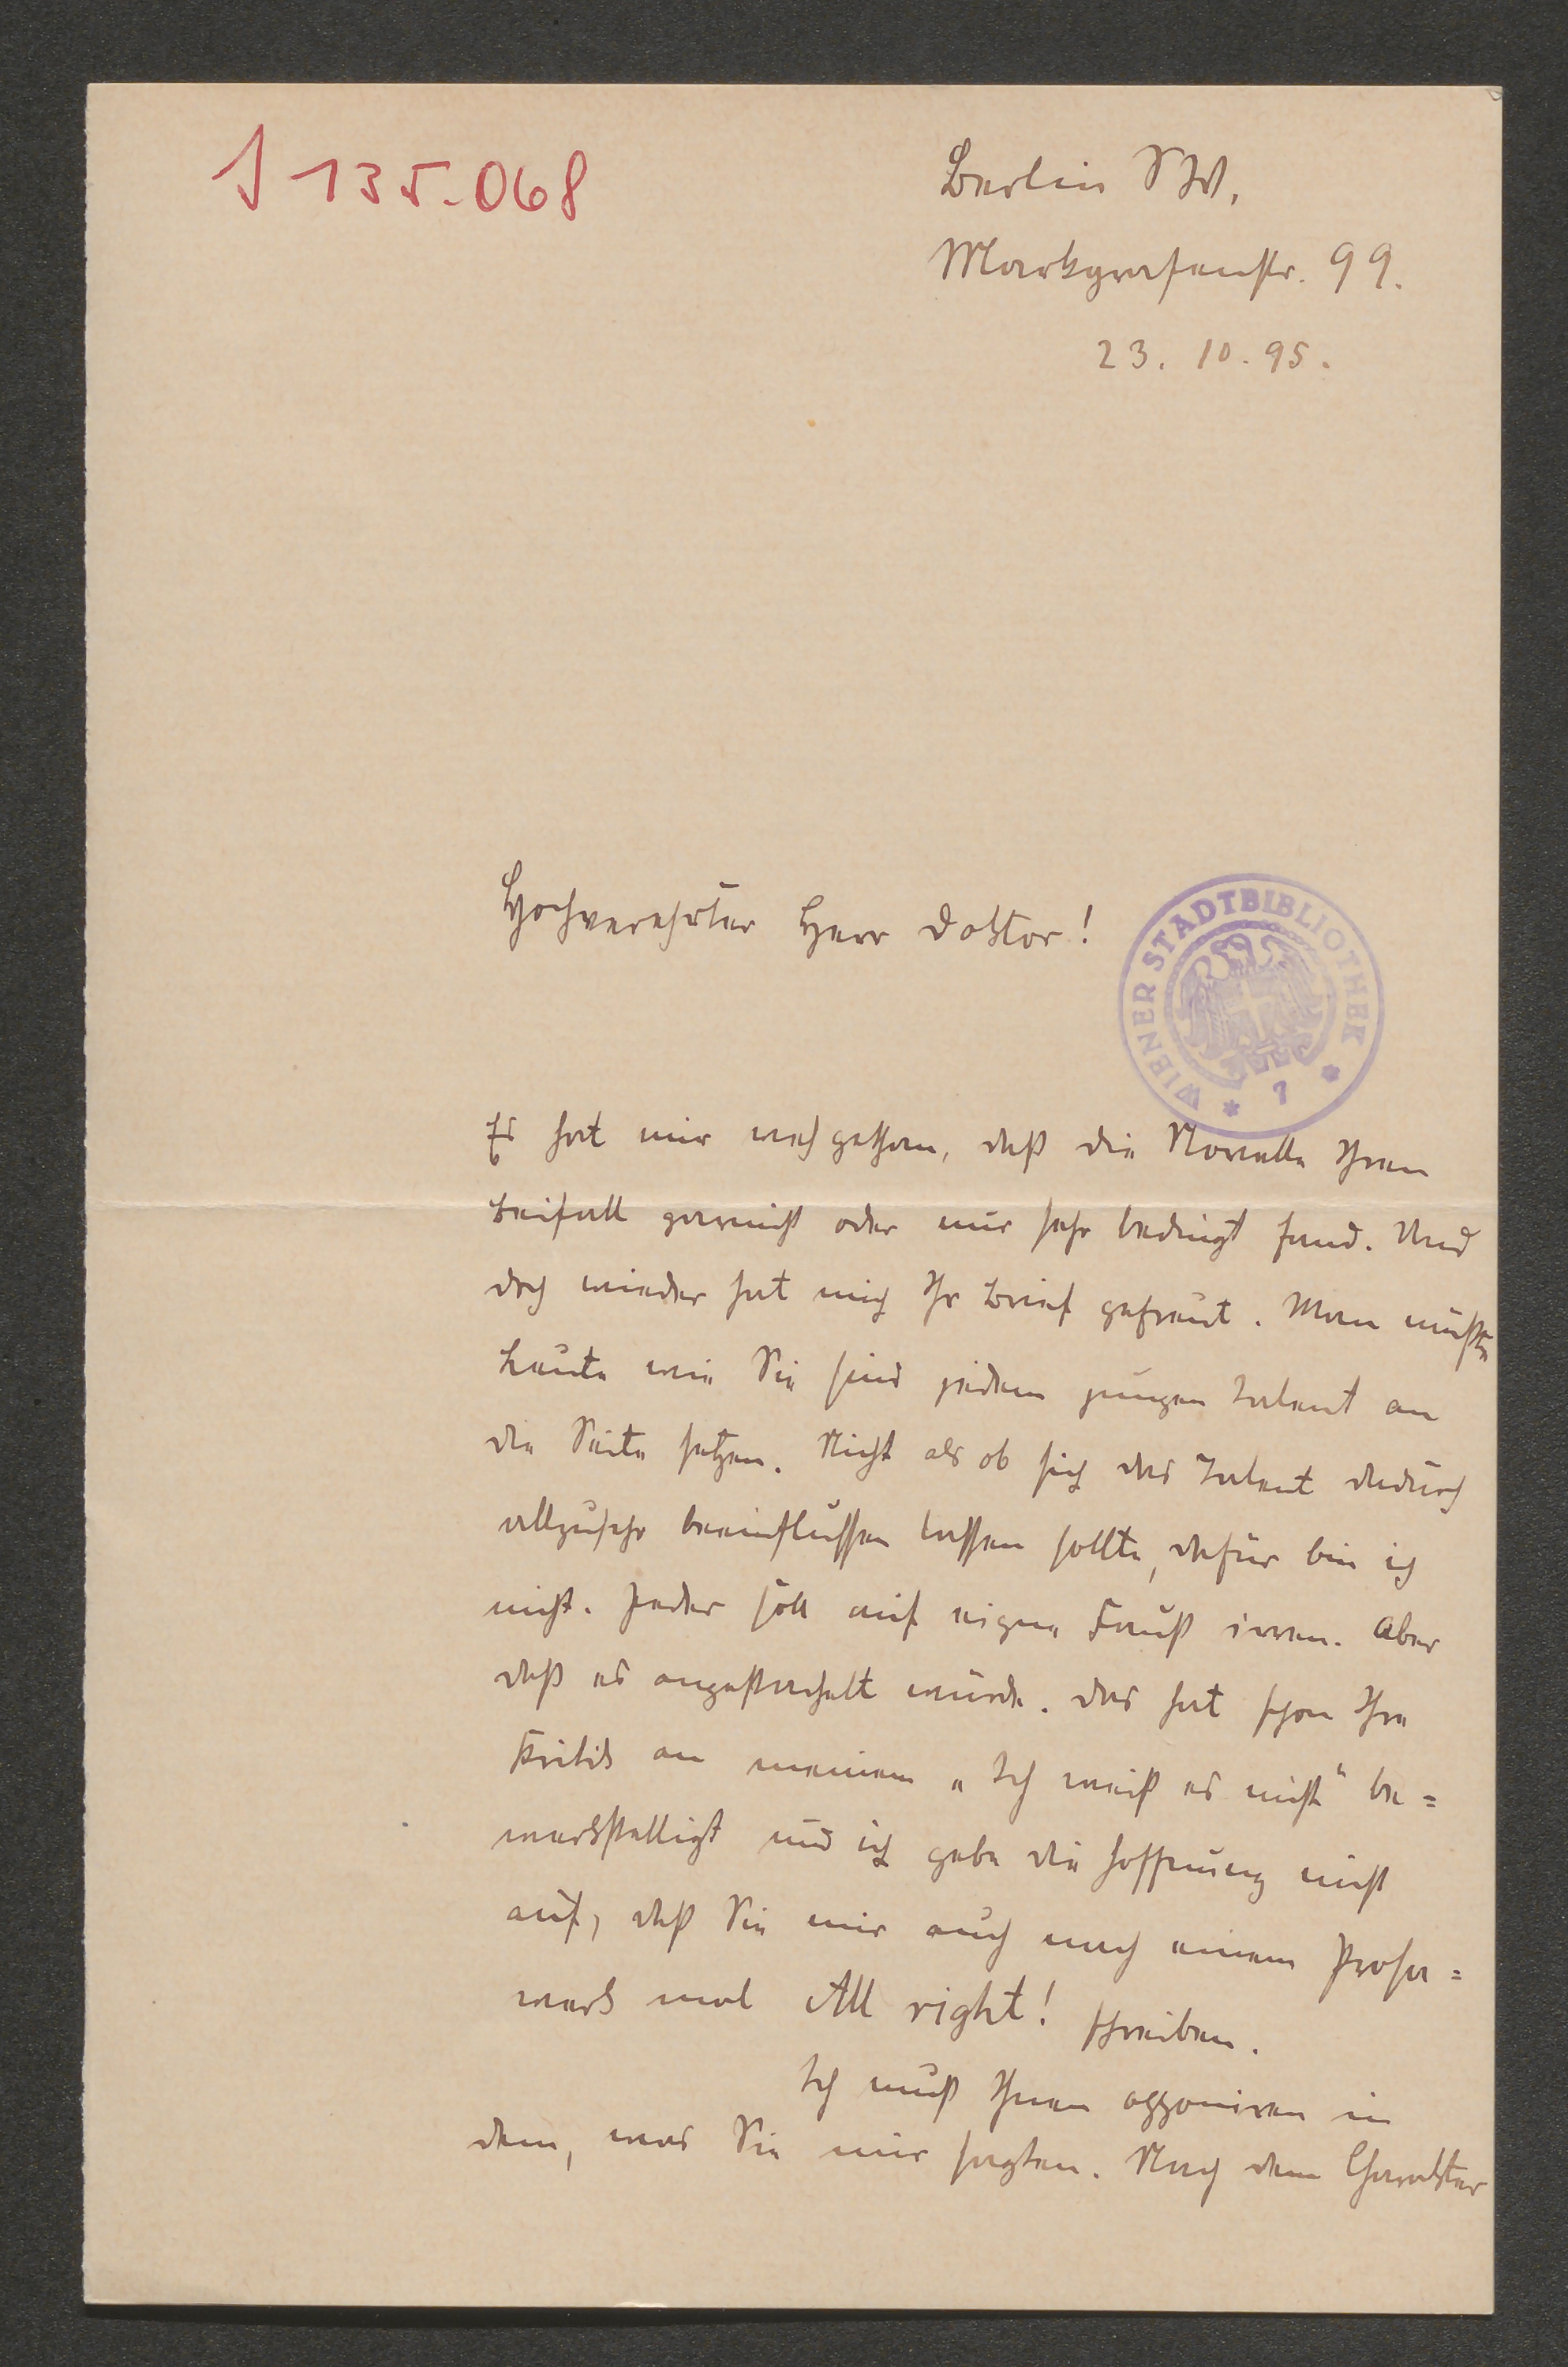 J 135.068
Berlin SW,
Markgrafenstr. 99.
23. 10. 95.
Hochverehrter Herr Doktor!
WIENER STADTBIBLIOTHEK
* 7 *
Es hat mir weh gethan, daß die Novelle Ihren
Beifall garnicht oder nur sehr bedingt fand. Und
doch wieder hat mich Ihr Brief gefreut. Man müßte
Leute wie Sie sind jedem jungen Talent an
die Seite setzen. Nicht als ob sich das Talent dadurch
allzusehr beeinflussen lassen sollte, dafür bin ich
nicht. Jeder soll auf eigne Faust irren. Aber
daß es angestachelt würde. Das hat schon Ihre
Kritik an meinem „Ich weiß es nicht“ be=
werkstelligt und ich gebe die Hoffnung nicht
auf, daß Sie mir auch nach einem Prosa=
werk mal All right! schreiben.
Ich muß Ihnen opponiren in
dem, was Sie mir sagten. Nach dem Charakter